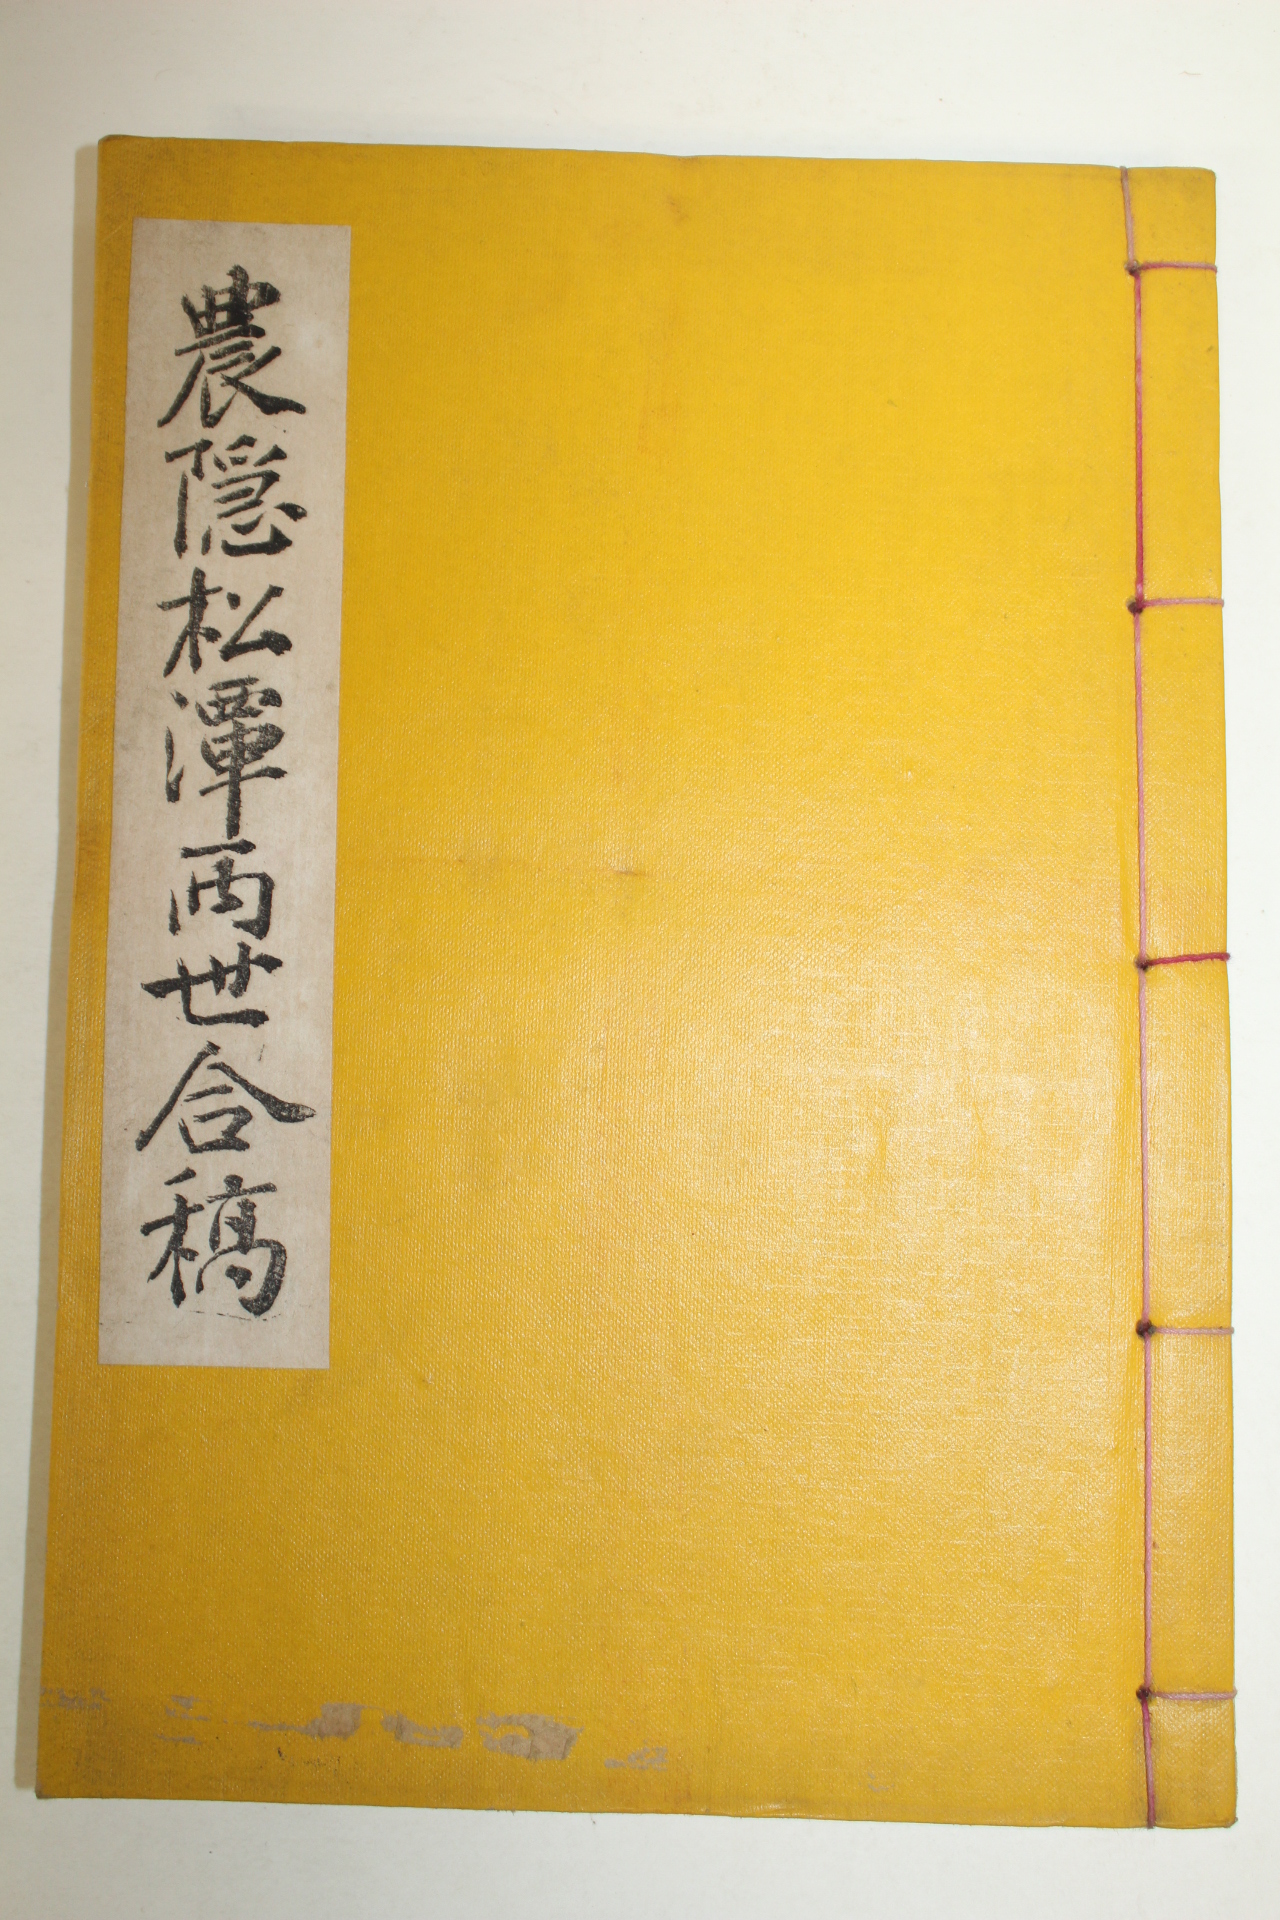 農隱松潭两世合稿